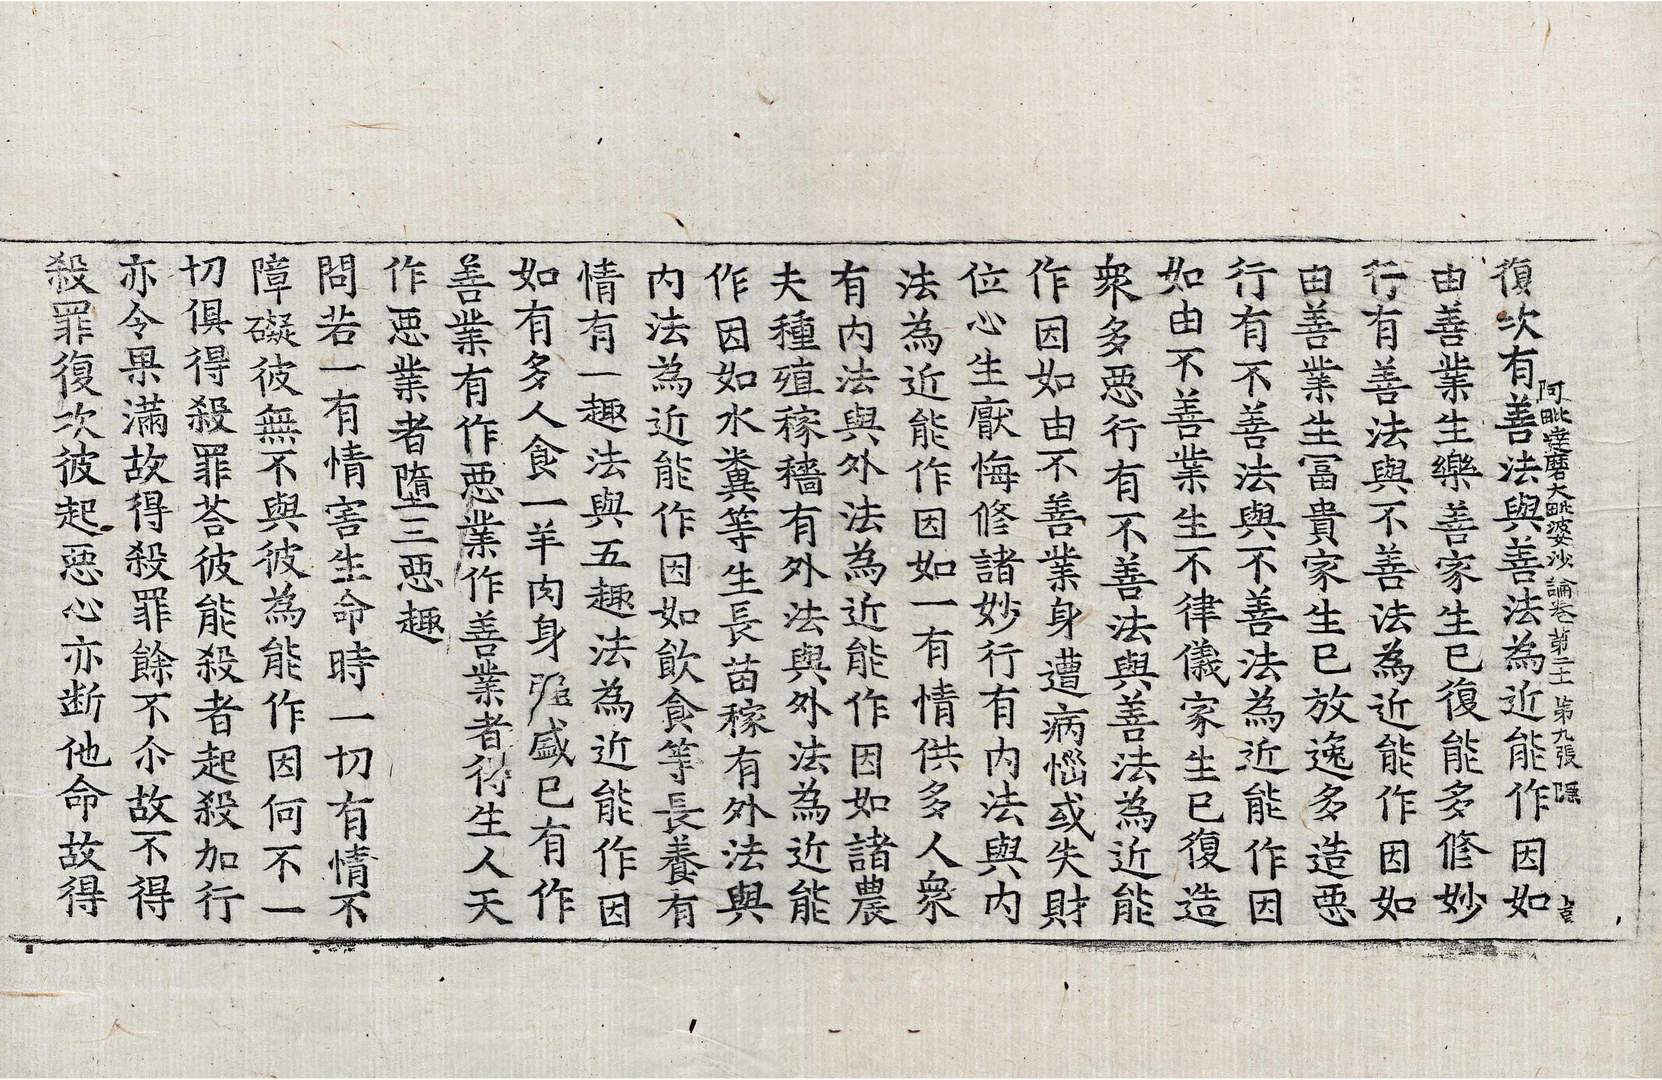 阿毗達磨大毗婆沙論卷第二十 第九張 隱
復次有善法與善法為近能作因如
由善業生樂善家生已復能多修妙
行有善法與不善法為近能作因如
由善業生冨貴家生已放逸多造惡
行有不善法與不善法為近能作因
如由不善業生不律儀家生已復造
衆多惡行有不善法與善法為近能
作因如由不善業身遭病惱或失財
位心生厭悔修諸妙行有内法與内
法為近能作因如一有情供多人衆
有内法與外法為近能作因如諸農
夫種殖稼穡有外法與外法為近能
作因如水糞等生長苗稼有外法與
内法為近能作因如飲食等長養有
情有一趣法與五趣法為近能作因
如有多人食一羊肉身強盛已有作
善業有作惡業作善業者得生人天
作惡業者墮三惡趣
問若一有情害生命時一切有情不
障礙彼無不與彼為能作因何不一
切俱得殺罪荅彼能殺者起殺加行
亦令果滿故得殺罪餘不尒故不得
殺罪復次彼起惡心亦断他命故得